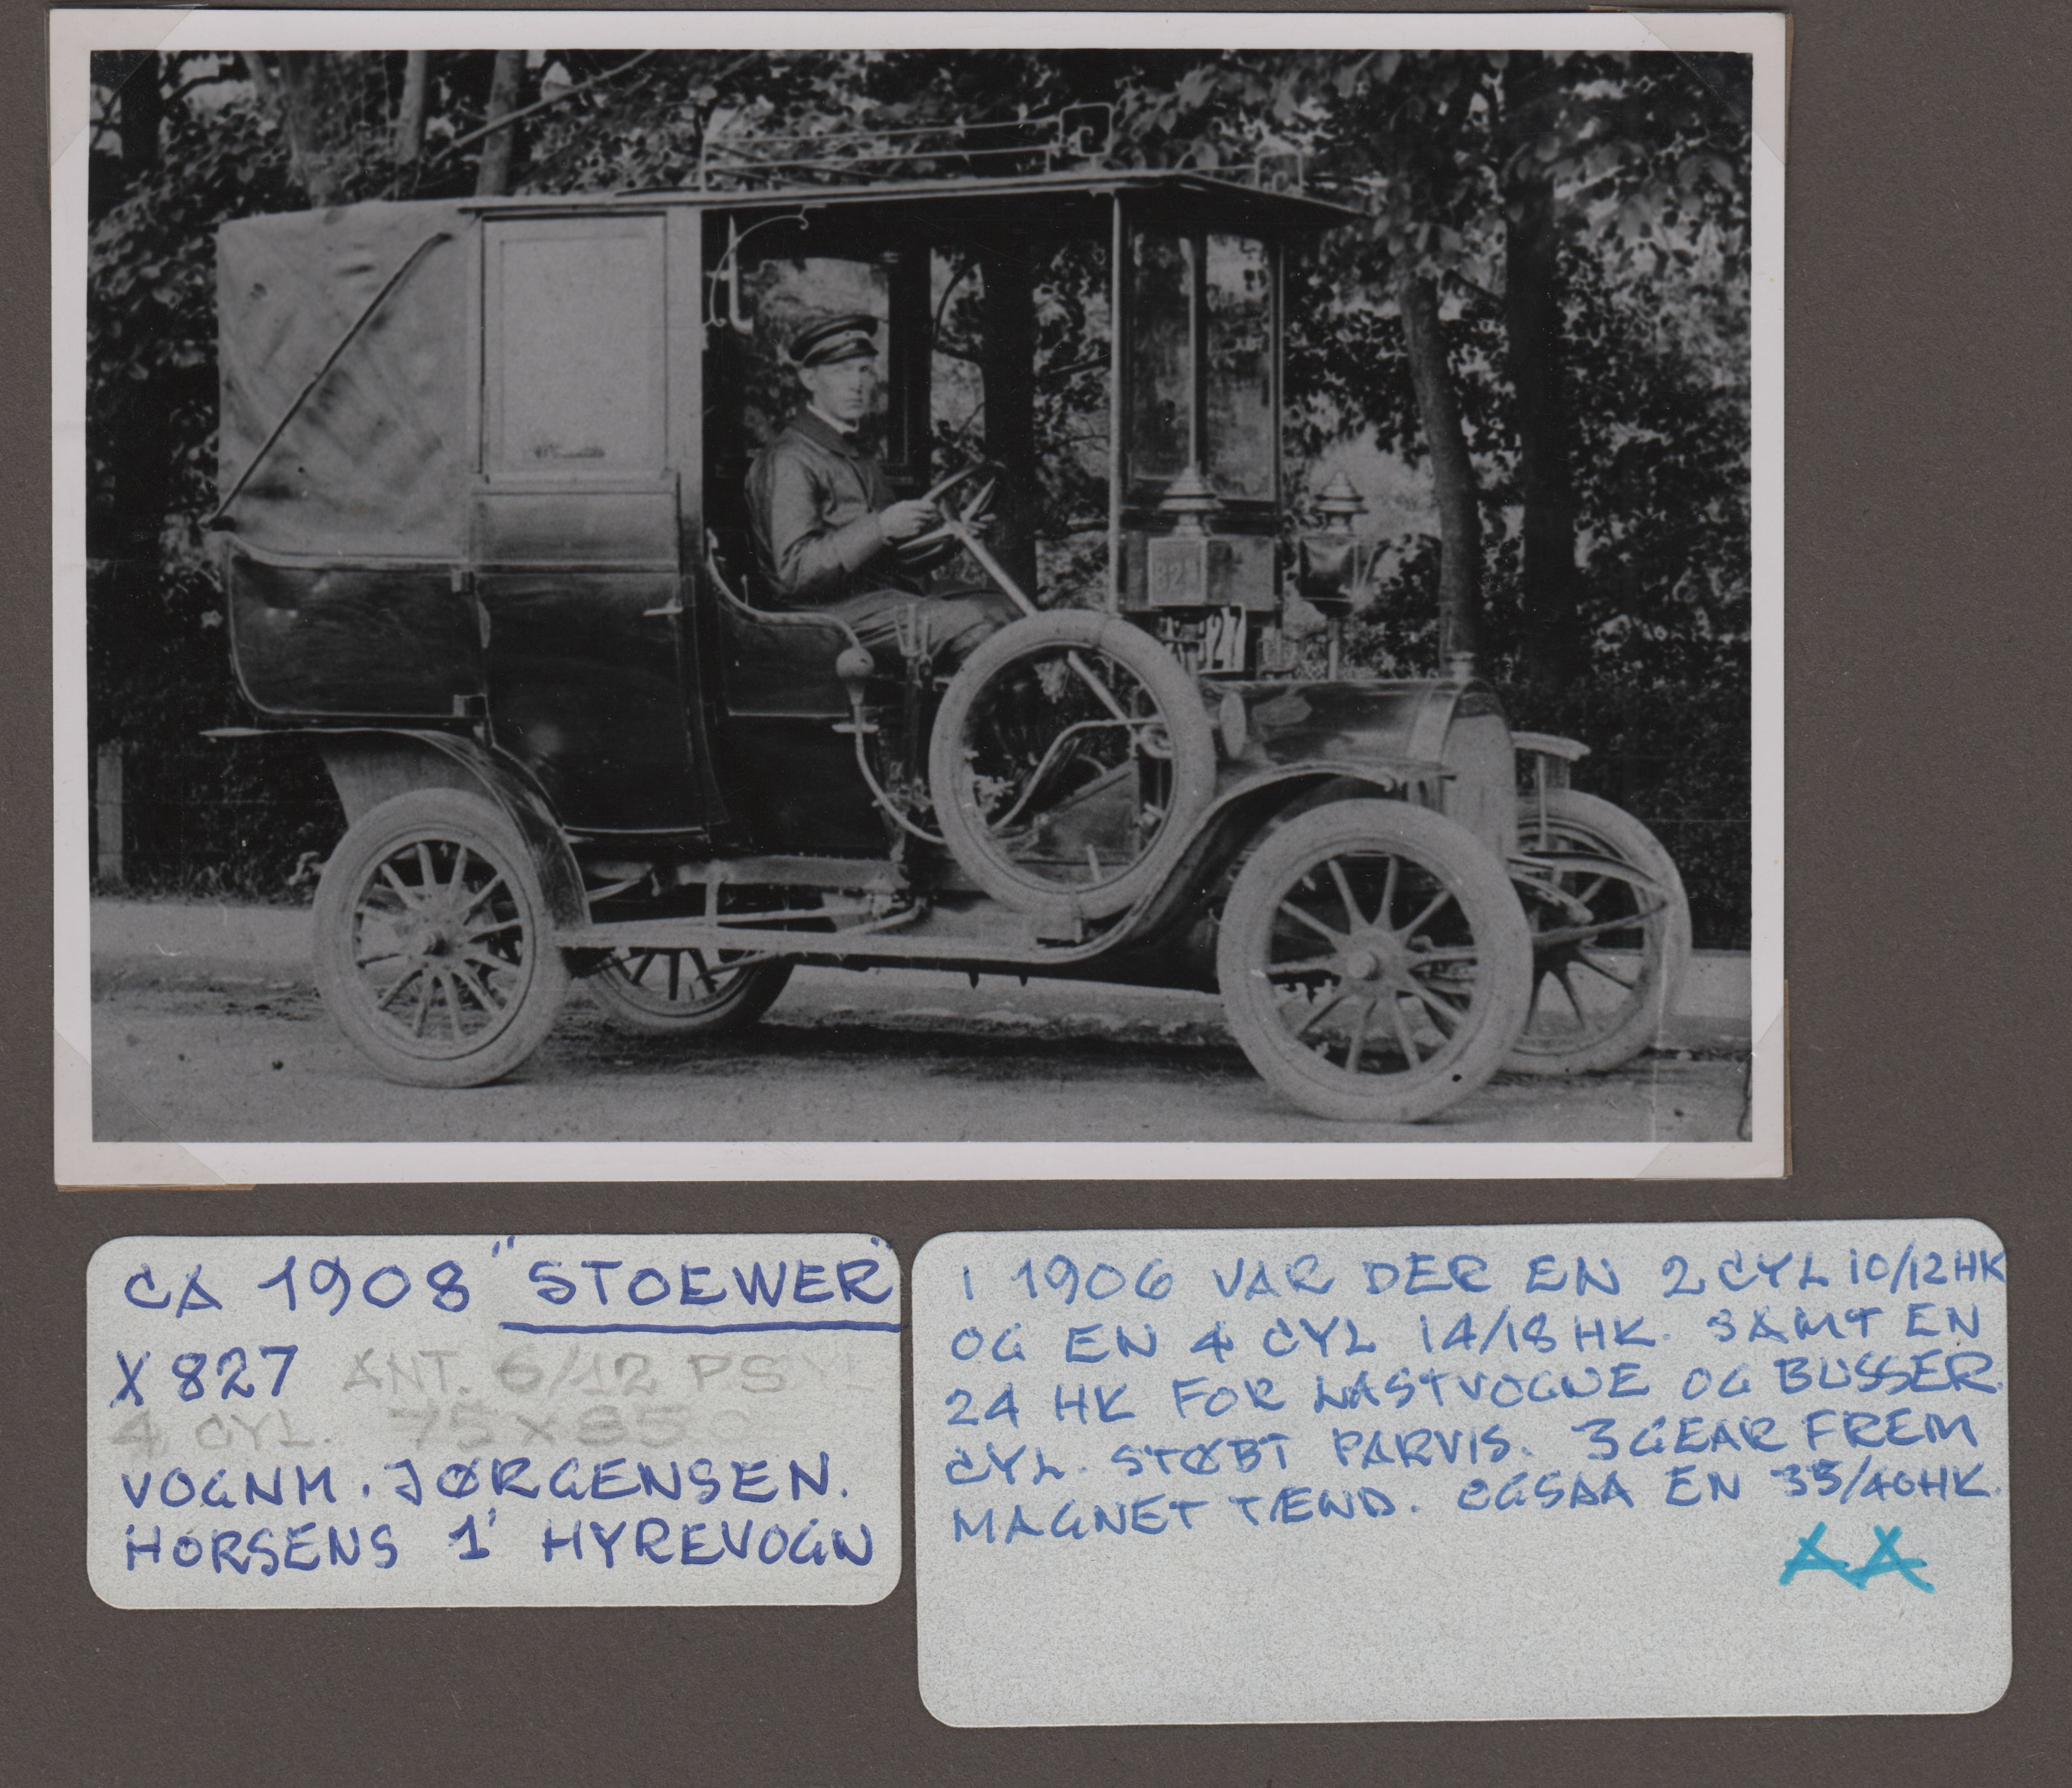 827
827
CA 1908 "STOEWER"
X 827 ANT. 6/12 PS
4 CYL. 75 x 85
VOGNM. JØRGENSEN.
HORSENS 1' HYREVOGN
I 1906 VAR DER EN 2 CYL 10/12 HK
OG EN 4 CYL 14/18 HK. SAMT EN
24 HK FOR LASTVOGNE OG BUSSER.
CYL. STØBT PARVIS. 3 GEAR FREM
MAGNET TÆND. OGSAA EN 35/40 HK.
AA